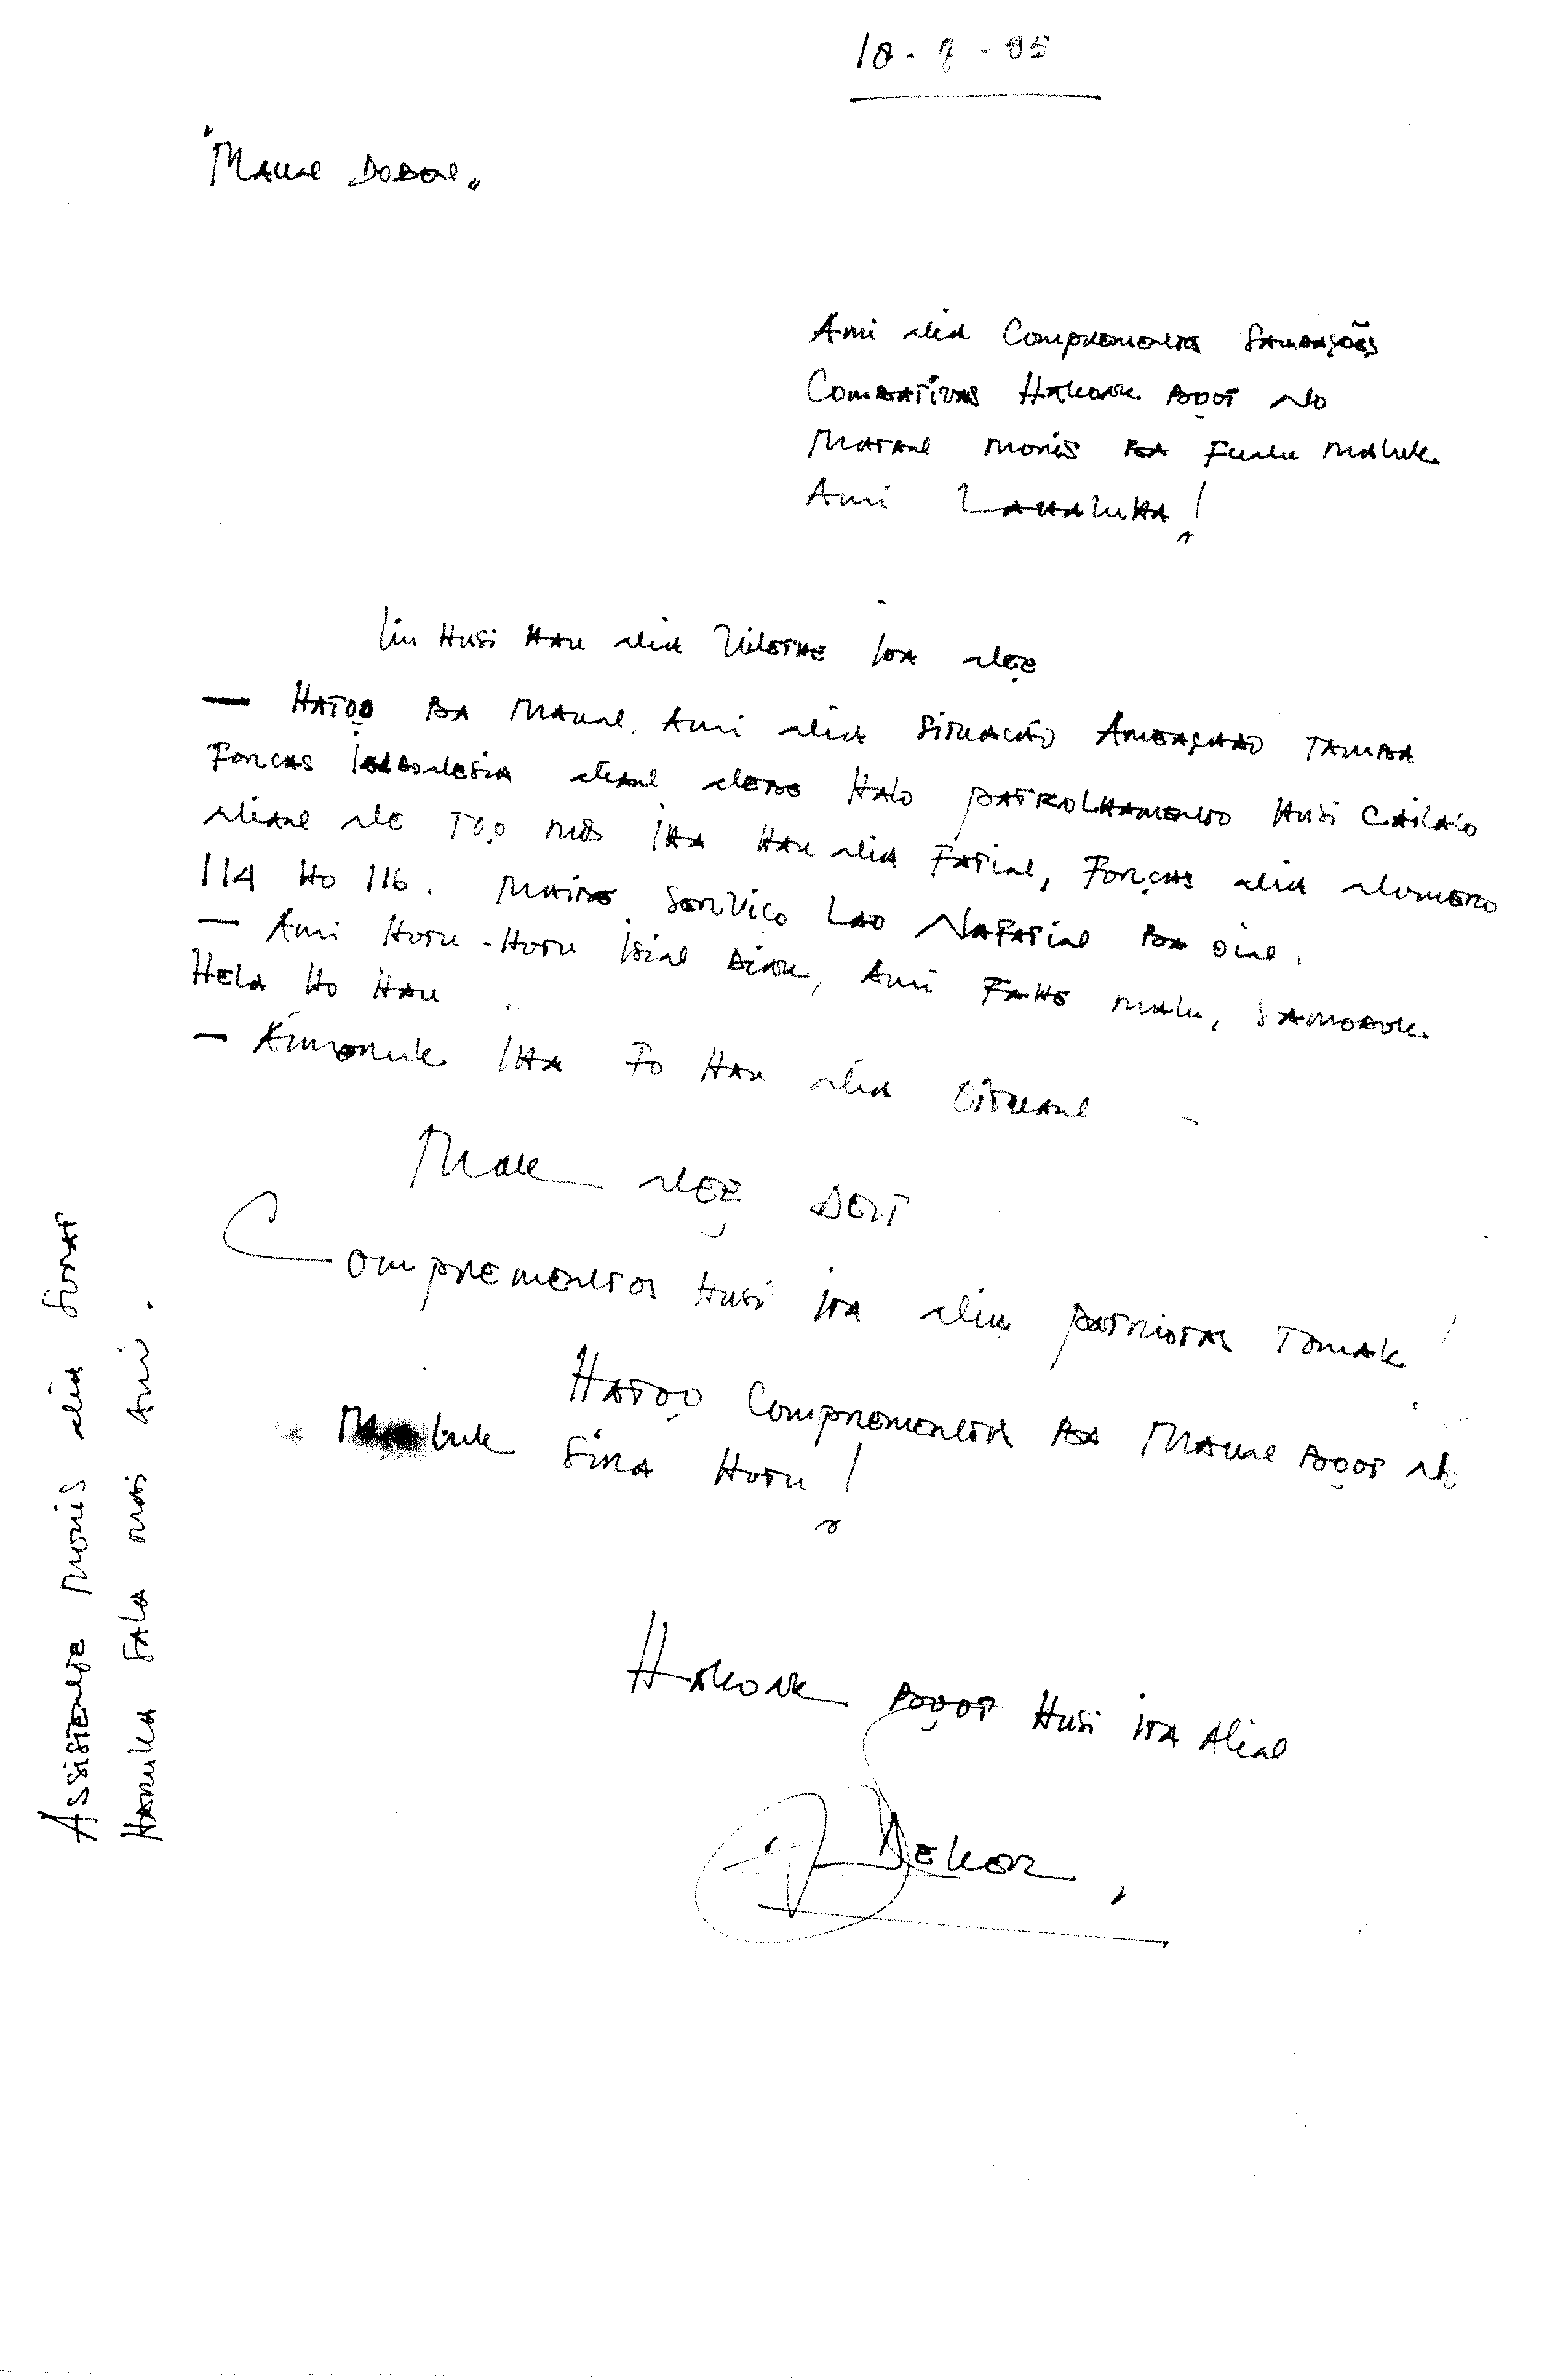 18-7-95
"Maun Doben"
Ami nia Comprementos Saudações
Combativas Hakoak Boọt no
Matan moris ba Funu maluk
Ami Lahaluha!
Liu Husi Hau nia ita neẹ
— Hatoọ ba Maun Ami nia Situacão Ameaçhao tamba
Forcas Indonesia nian nebe Halo patrolhamento Husi Cailaco
nian ne Toọ mos iha Hau nia Fatin, Forças nia numero
114 Ho 116. Maibe Serviço Lao Nafatin ba oin.
— Ami Hotu-Hotu isin diak, Ami Fahe malu, Samodok
Hela Ho Hau
— iha Fo Hau nia Oituan
Mak neẹ Deit
Comprementos Husi ita nia patriotas Tomak!
Hatoọ Comprementos ba Maun Boọt no
Maluk Sira Hotu!
Hakoak Boọt Husi ita Alin
Dekor,
Assistente moris nia Surat
Haruka Sala mos Ami.